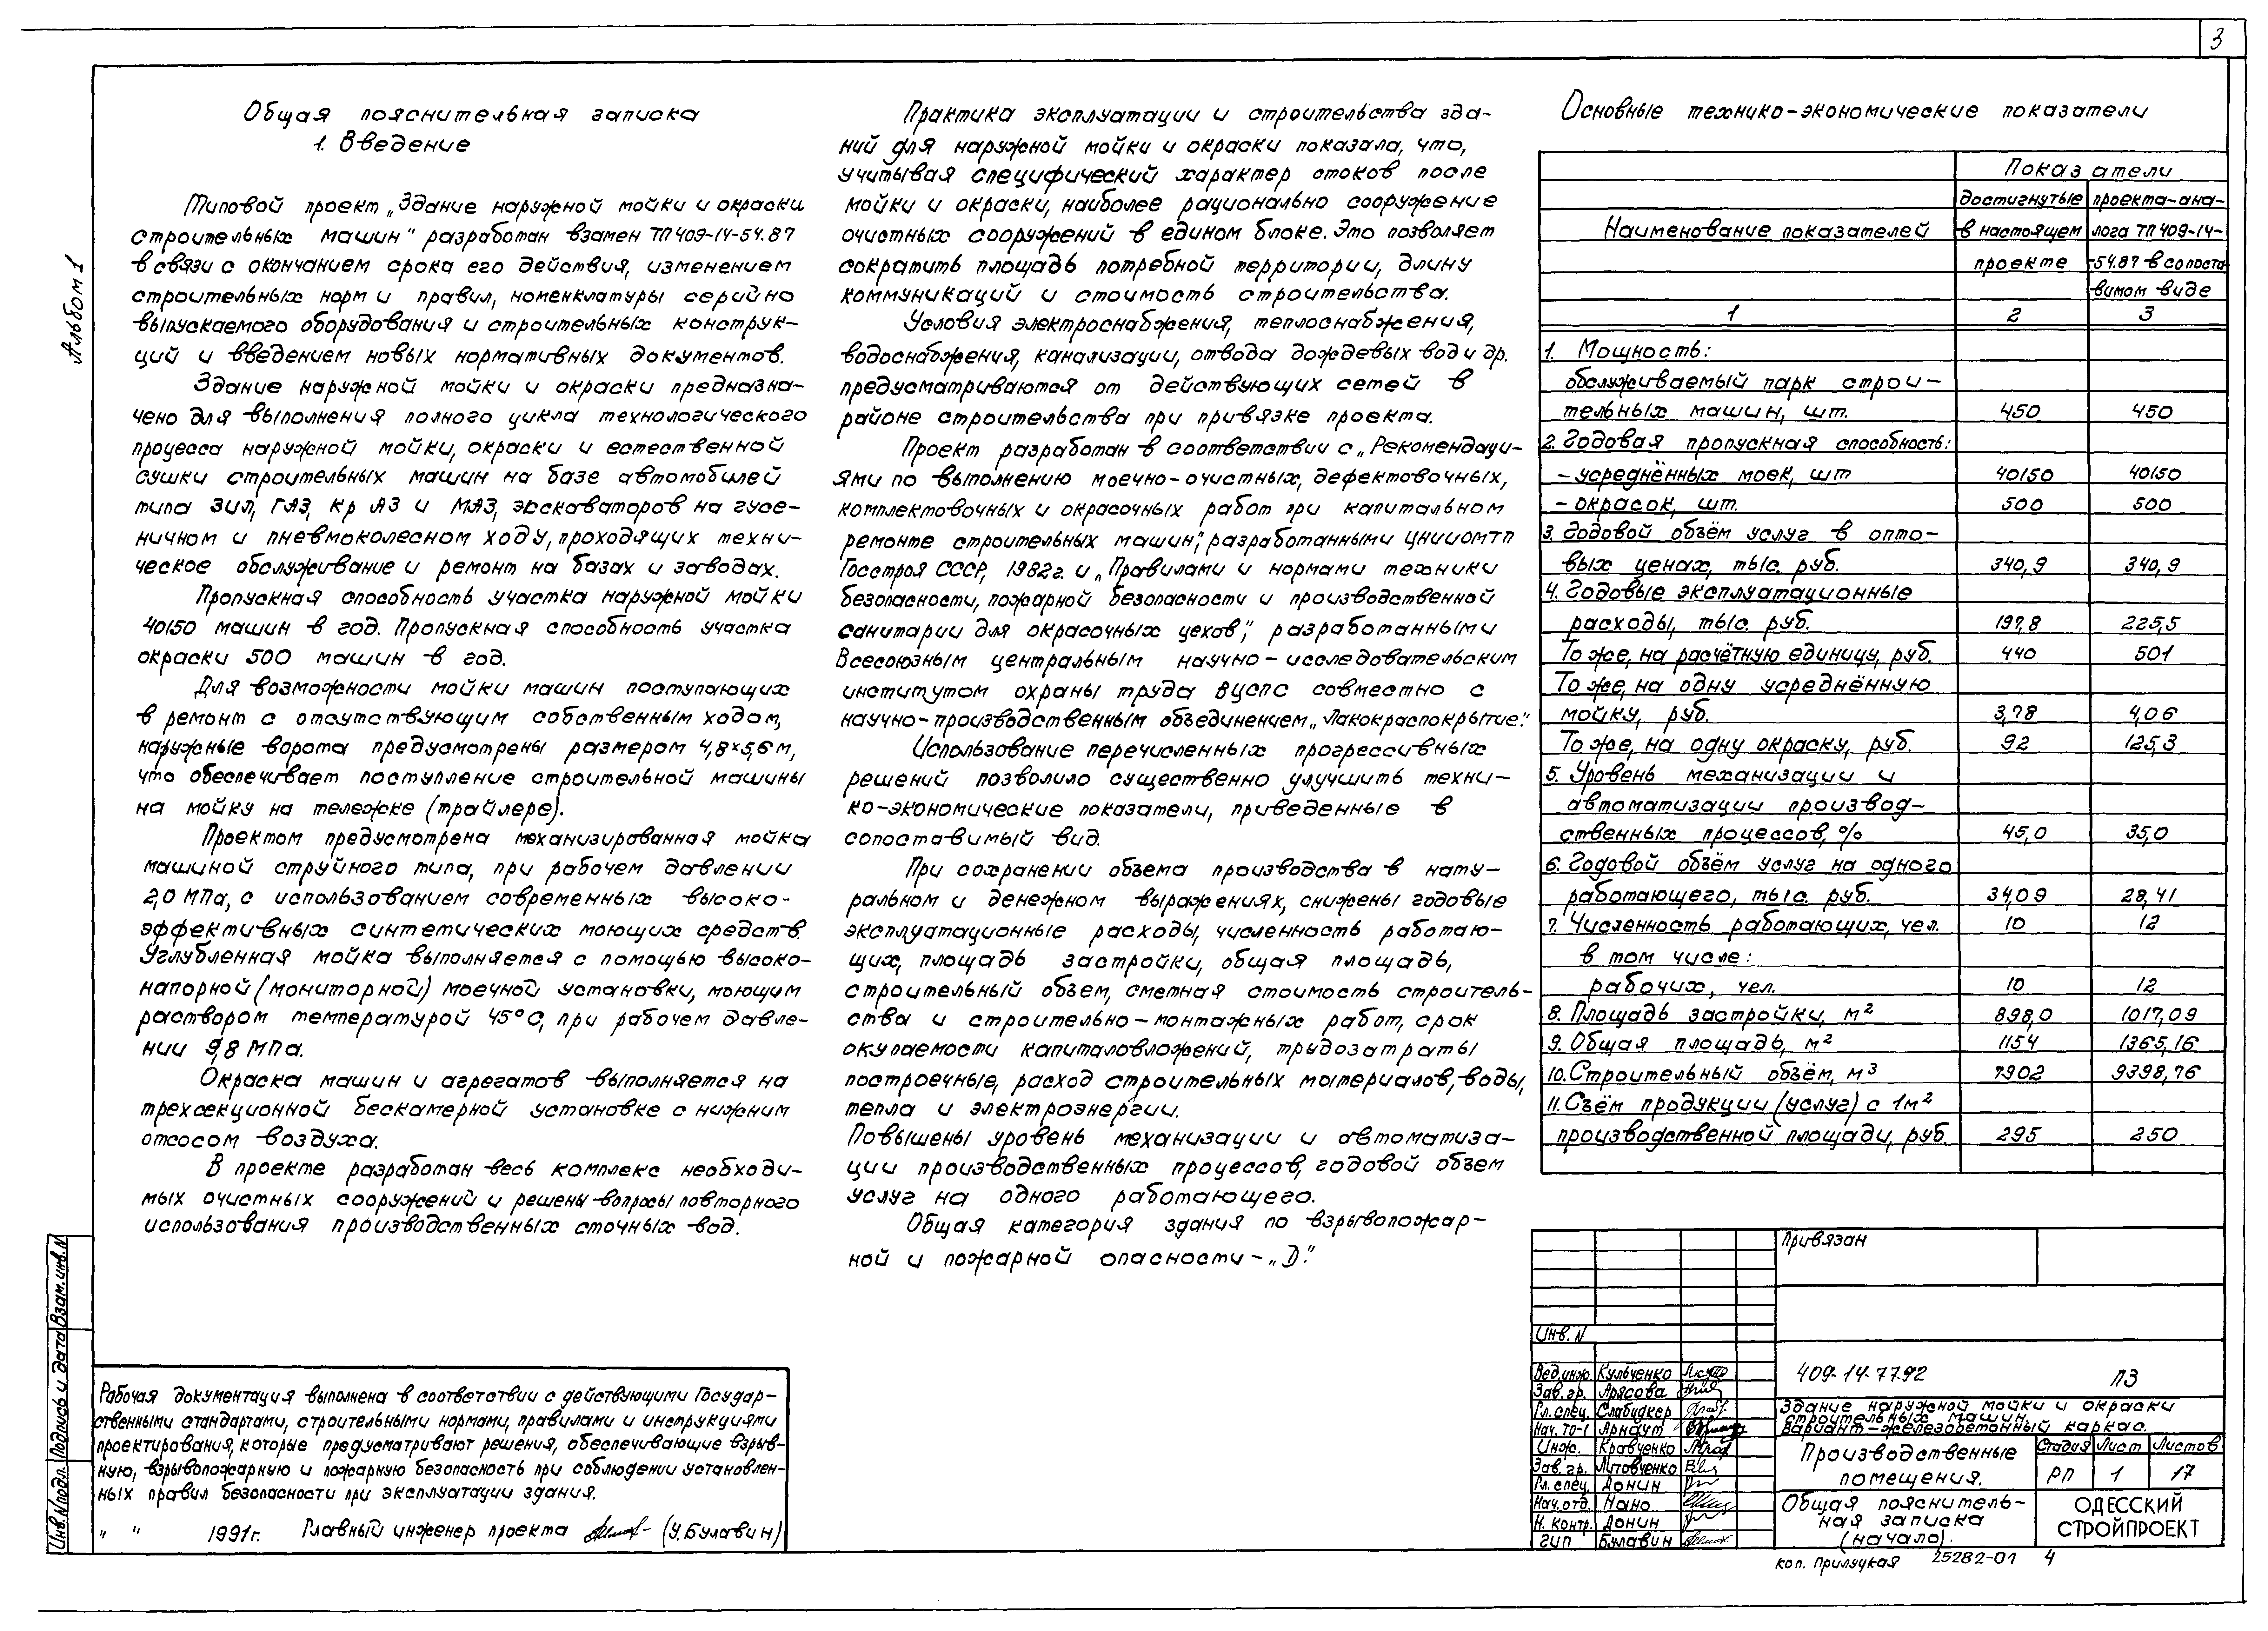 3
Альбом 1
Общая пояснительная записка
1. Введение
Типовой проект „Здание наружной мойки и окраски
строительных машин" разработан взамен ТП 409-14-54.87
в связи с окончанием срока его действия, изменением
строительных норм и правил, номенклатуры серийно
выпускаемого оборудования и строительных конструк-
ций и введением новых нормативных документов.
Здание наружной мойки и окраски предназна-
чено для выполнения полного цикла технологического
процесса наружной мойки, окраски и естественной
сушки строительных машин на базе автомобилей
типа ЗИЛ, ГАЗ, КрАЗ и МАЗ, экскаваторов на гусе-
ничном и пневмоколесном ходу, проходящих техни-
ческое обслуживание и ремонт на базах и заводах.
Пропускная способность участка наружной мойки
40150 машин в год. Пропускная способность участка
окраски 500 машин в год.
Для возможности мойки машин поступающих
в ремонт с отсутствующим собственным ходом,
наружные ворота предусмотрены размером 4,8×5,6 м,
что обеспечивает поступление строительной машины
на мойку на тележке (трайлере).
Проектом предусмотрена механизированная мойка
машиной струйного типа, при рабочем давлении
2,0 МПа, с использованием современных высоко-
эффективных синтетических моющих средств.
Углубленная мойка выполняется с помощью высоко-
напорной (мониторной) моечной установки, моющим
раствором температурой 45°С, при рабочем давле-
нии 9,8 МПа.
Окраска машин и агрегатов выполняется на
трехсекционной бескамерной установке с нижним
отсосом воздуха.
В проекте разработан весь комплекс необходи-
мых очистных сооружений и решены вопросы повторного
использования производственных сточных вод.
Практика эксплуатации и строительства зда-
ний для наружной мойки и окраски показала, что,
учитывая специфический характер стоков после
мойки и окраски, наиболее рационально сооружение
очистных сооружений в едином блоке. Это позволяет
сократить площадь потребной территории, длину
коммуникаций и стоимость строительства.
Условия электроснабжения, теплоснабжения,
водоснабжения, канализации, отвода дождевых вод и др.
предусматриваются от действующих сетей в
районе строительства при привязке проекта.
Проект разработан в соответствии с „Рекомендаци-
ями по выполнению моечно-очистных, дефектовочных,
комплектовочных и окрасочных работ при капитальном
ремонте строительных машин", разработанными ЦНИИОМТП
Госстроя СССР, 1982г. и „Правилами и нормами техники
безопасности, пожарной безопасности и производственной
санитарии для окрасочных цехов", разработанными
Всесоюзным центральным научно-исследовательским
институтом охраны труда ВЦСПС совместно с
научно-производственным объединением „Лакокраспокрытие".
Использование перечисленных прогрессивных
решений позволило существенно улучшить техни-
ко-экономические показатели, приведенные в
сопоставимый вид.
При сохранении объема производства в нату-
ральном и денежном выражениях, снижены годовые
эксплуатационные расходы, численность работаю-
щих, площадь застройки, общая площадь,
строительный объем, сметная стоимость строитель-
ства и строительно-монтажных работ, срок
окупаемости капиталовложений, трудозатраты
построечные, расход строительных материалов, воды,
тепла и электроэнергии.
Повышены уровень механизации и автоматиза-
ции производственных процессов, годовой объем
услуг на одного работающего.
Общая категория здания по взрывопожар-
ной и пожарной опасности – „Д".
Основные технико-экономические показатели
Наименование показателей
Показатели
достигнутые в настоящем проекте
проекта-ана-
лога ТП 409-14-
-54.87 в сопоста
вимом виде
1 2 3
1. Мощность:
обслуживаемый парк строи-
тельных машин, шт. 450 450
2. Годовая пропускная способность:
– усреднённых моек, шт 40150 40150
– окрасок, шт. 500 500
3. Годовой объём услуг в опто-
вых ценах, тыс. руб. 340,9 340,9
4. Годовые эксплуатационные
расходы, тыс. руб. 197,8 225,5
То же, на расчётную единицу, руб. 440 501
То же, на одну усреднённую
мойку, руб. 3,78 4,06
То же, на одну окраску, руб. 92 125,3
5. Уровень механизации и
автоматизации производ-
ственных процессов, % 45,0 35,0
6. Годовой объём услуг на одного
работающего, тыс. руб. 34,09 28,41
7. Численность работающих, чел. 10 12
в том числе:
рабочих, чел. 10 12
8. Площадь застройки, м² 898,0 1017,09
9. Общая площадь, м² 1154 1365,16
10. Строительный объём, м³ 7902 9398,76
11. Съём продукции (услуг) с 1м²
производственной площади, руб. 295 250
Взам.инв.N
Подпись и дата
Инв.Nподл.
Рабочая документация выполнена в соответствии с действующими Государ-
ственными стандартами, строительными нормами, правилами и инструкциями
проектирования, которые предусматривают решения, обеспечивающие взрыв-
ную, взрывопожарную и пожарную безопасность при соблюдении установлен-
ных правил безопасности при эксплуатации здания.
„ " 1991г. Главный инженер проекта (У. Булавин)
Привязан
Инв. N
Вед.инж. Кульченко
Зав. гр. Арясова
Гл. спец. Слабидкер
Нач. ТО-1 Арнаут
Инж. Кравченко
Зав. гр. Литовченко
Гл. спец. Донин
Нач. отд. Нано
Н. контр. Донин
ГИП Булавин
409-14-77.92 ПЗ
Здание наружной мойки и окраски
строительных машин.
Вариант – железобетонный каркас.
Производственные
помещения.
Стадия Лист Листов
РП 1 17
Общая пояснитель-
ная записка
(начало).
ОДЕССКИЙ
СТРОЙПРОЕКТ
коп. Прилуцкая 25282-01 4